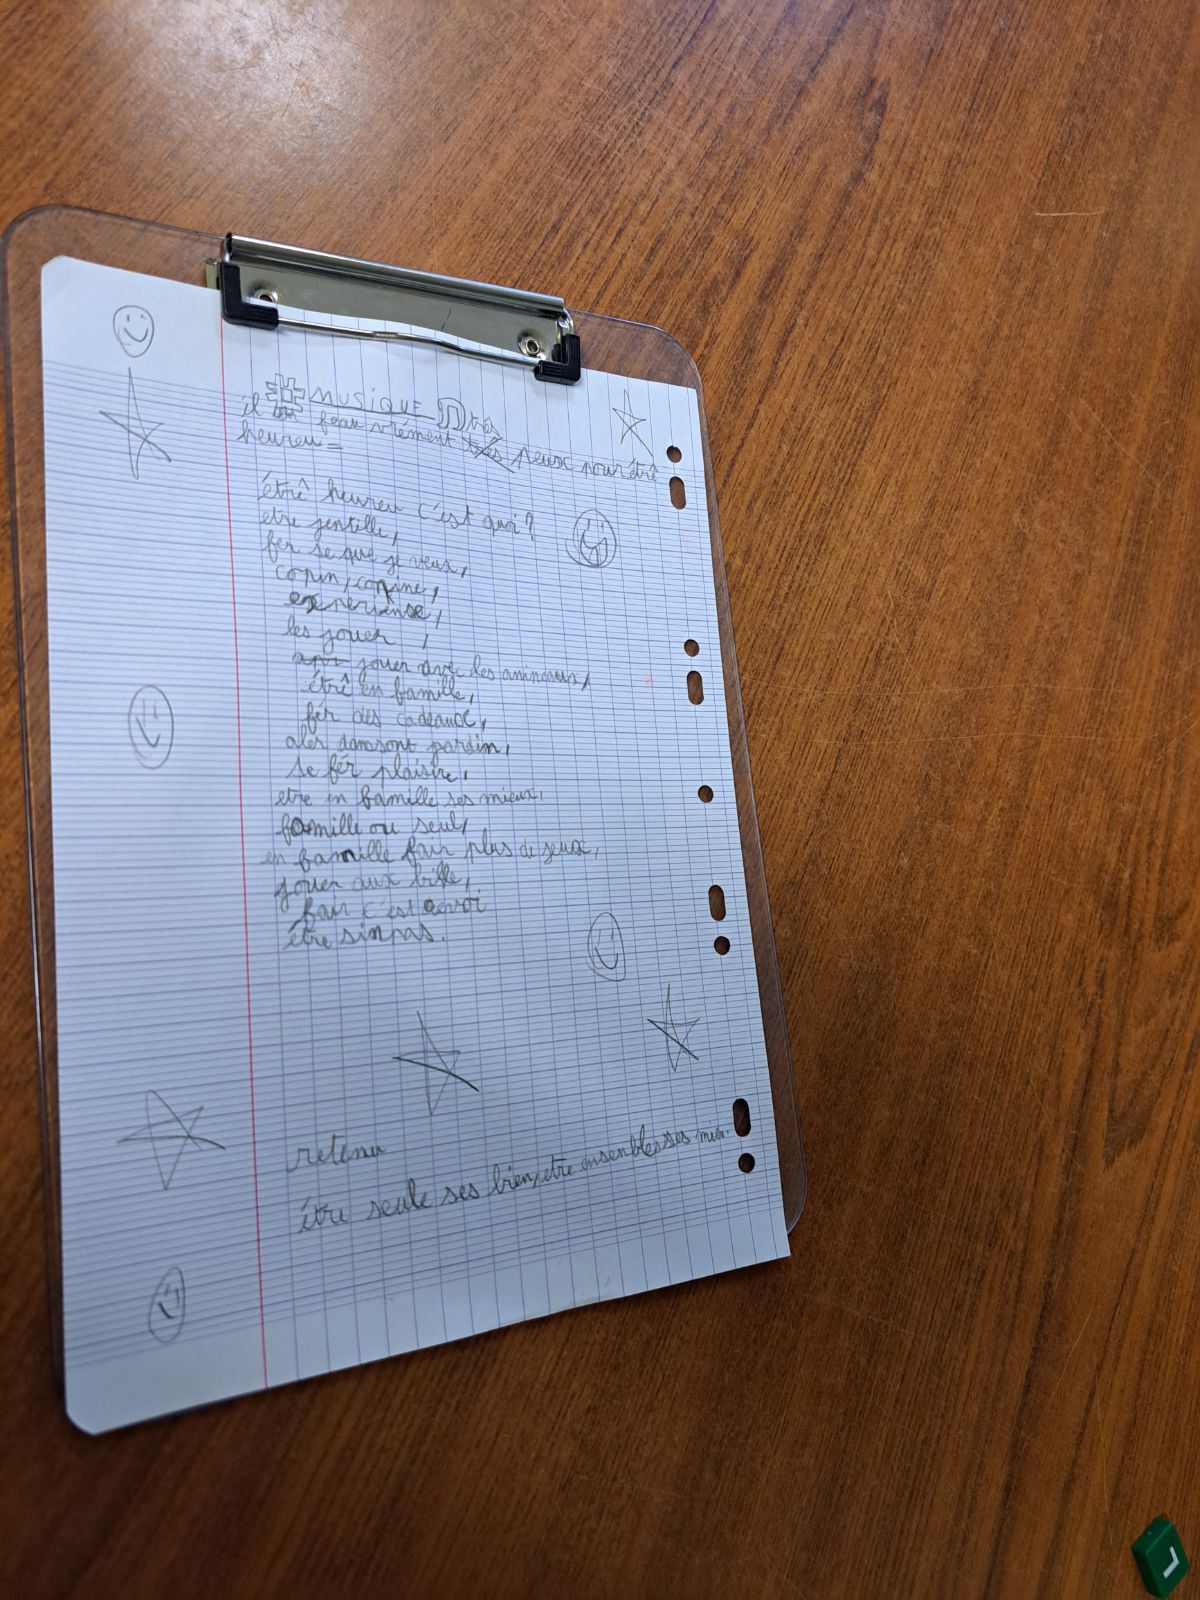 # MUSIQUE
il feau vrément peux pour être
heureu =
être heureu c'est quoi?
etre jentille,
fer se que je veux,
copin, copine,
experiense,
les jouer ,
jouer avec les animaux,
être en famille,
fer des cadeaux,
aler dansont jardin,
se fér plaisire,
etre en famille ses mieux,
famille ou seul,
en famille fair plus de jeux,
jouer aux bille,
fair c'est devoir
être sinpas.
retenu
être seule ses bien, etre ensembles ses mieu.
L